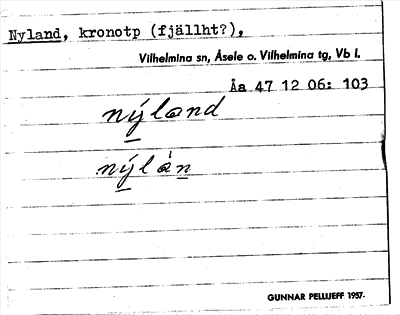 Nyland, kronotp (fjällht?),
Vilhelmina sn, Åsele o. Vilhelmina tg, Vb l.
Åa 47 12 06: 103
nýland
nýlàn
GUNNAR PELLIJEFF 1957.